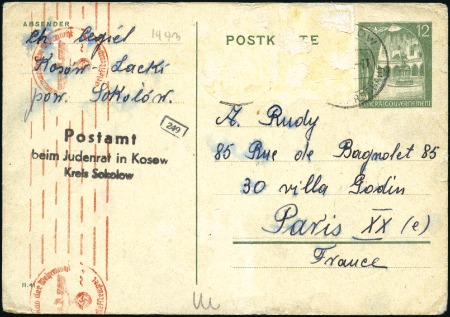 ABSENDER
1943
Ch. Cegiel
Kosów-Lacki
pow. Sokolów.
Postamt
beim Judenrat in Kosow
Kreis Sokolow
249
POSTK TE
12
GENERALGOUVERNEMENT
A. Rudy
85 Rue de Bagnolet 85
30 villa Godin
Paris XX (e)
France